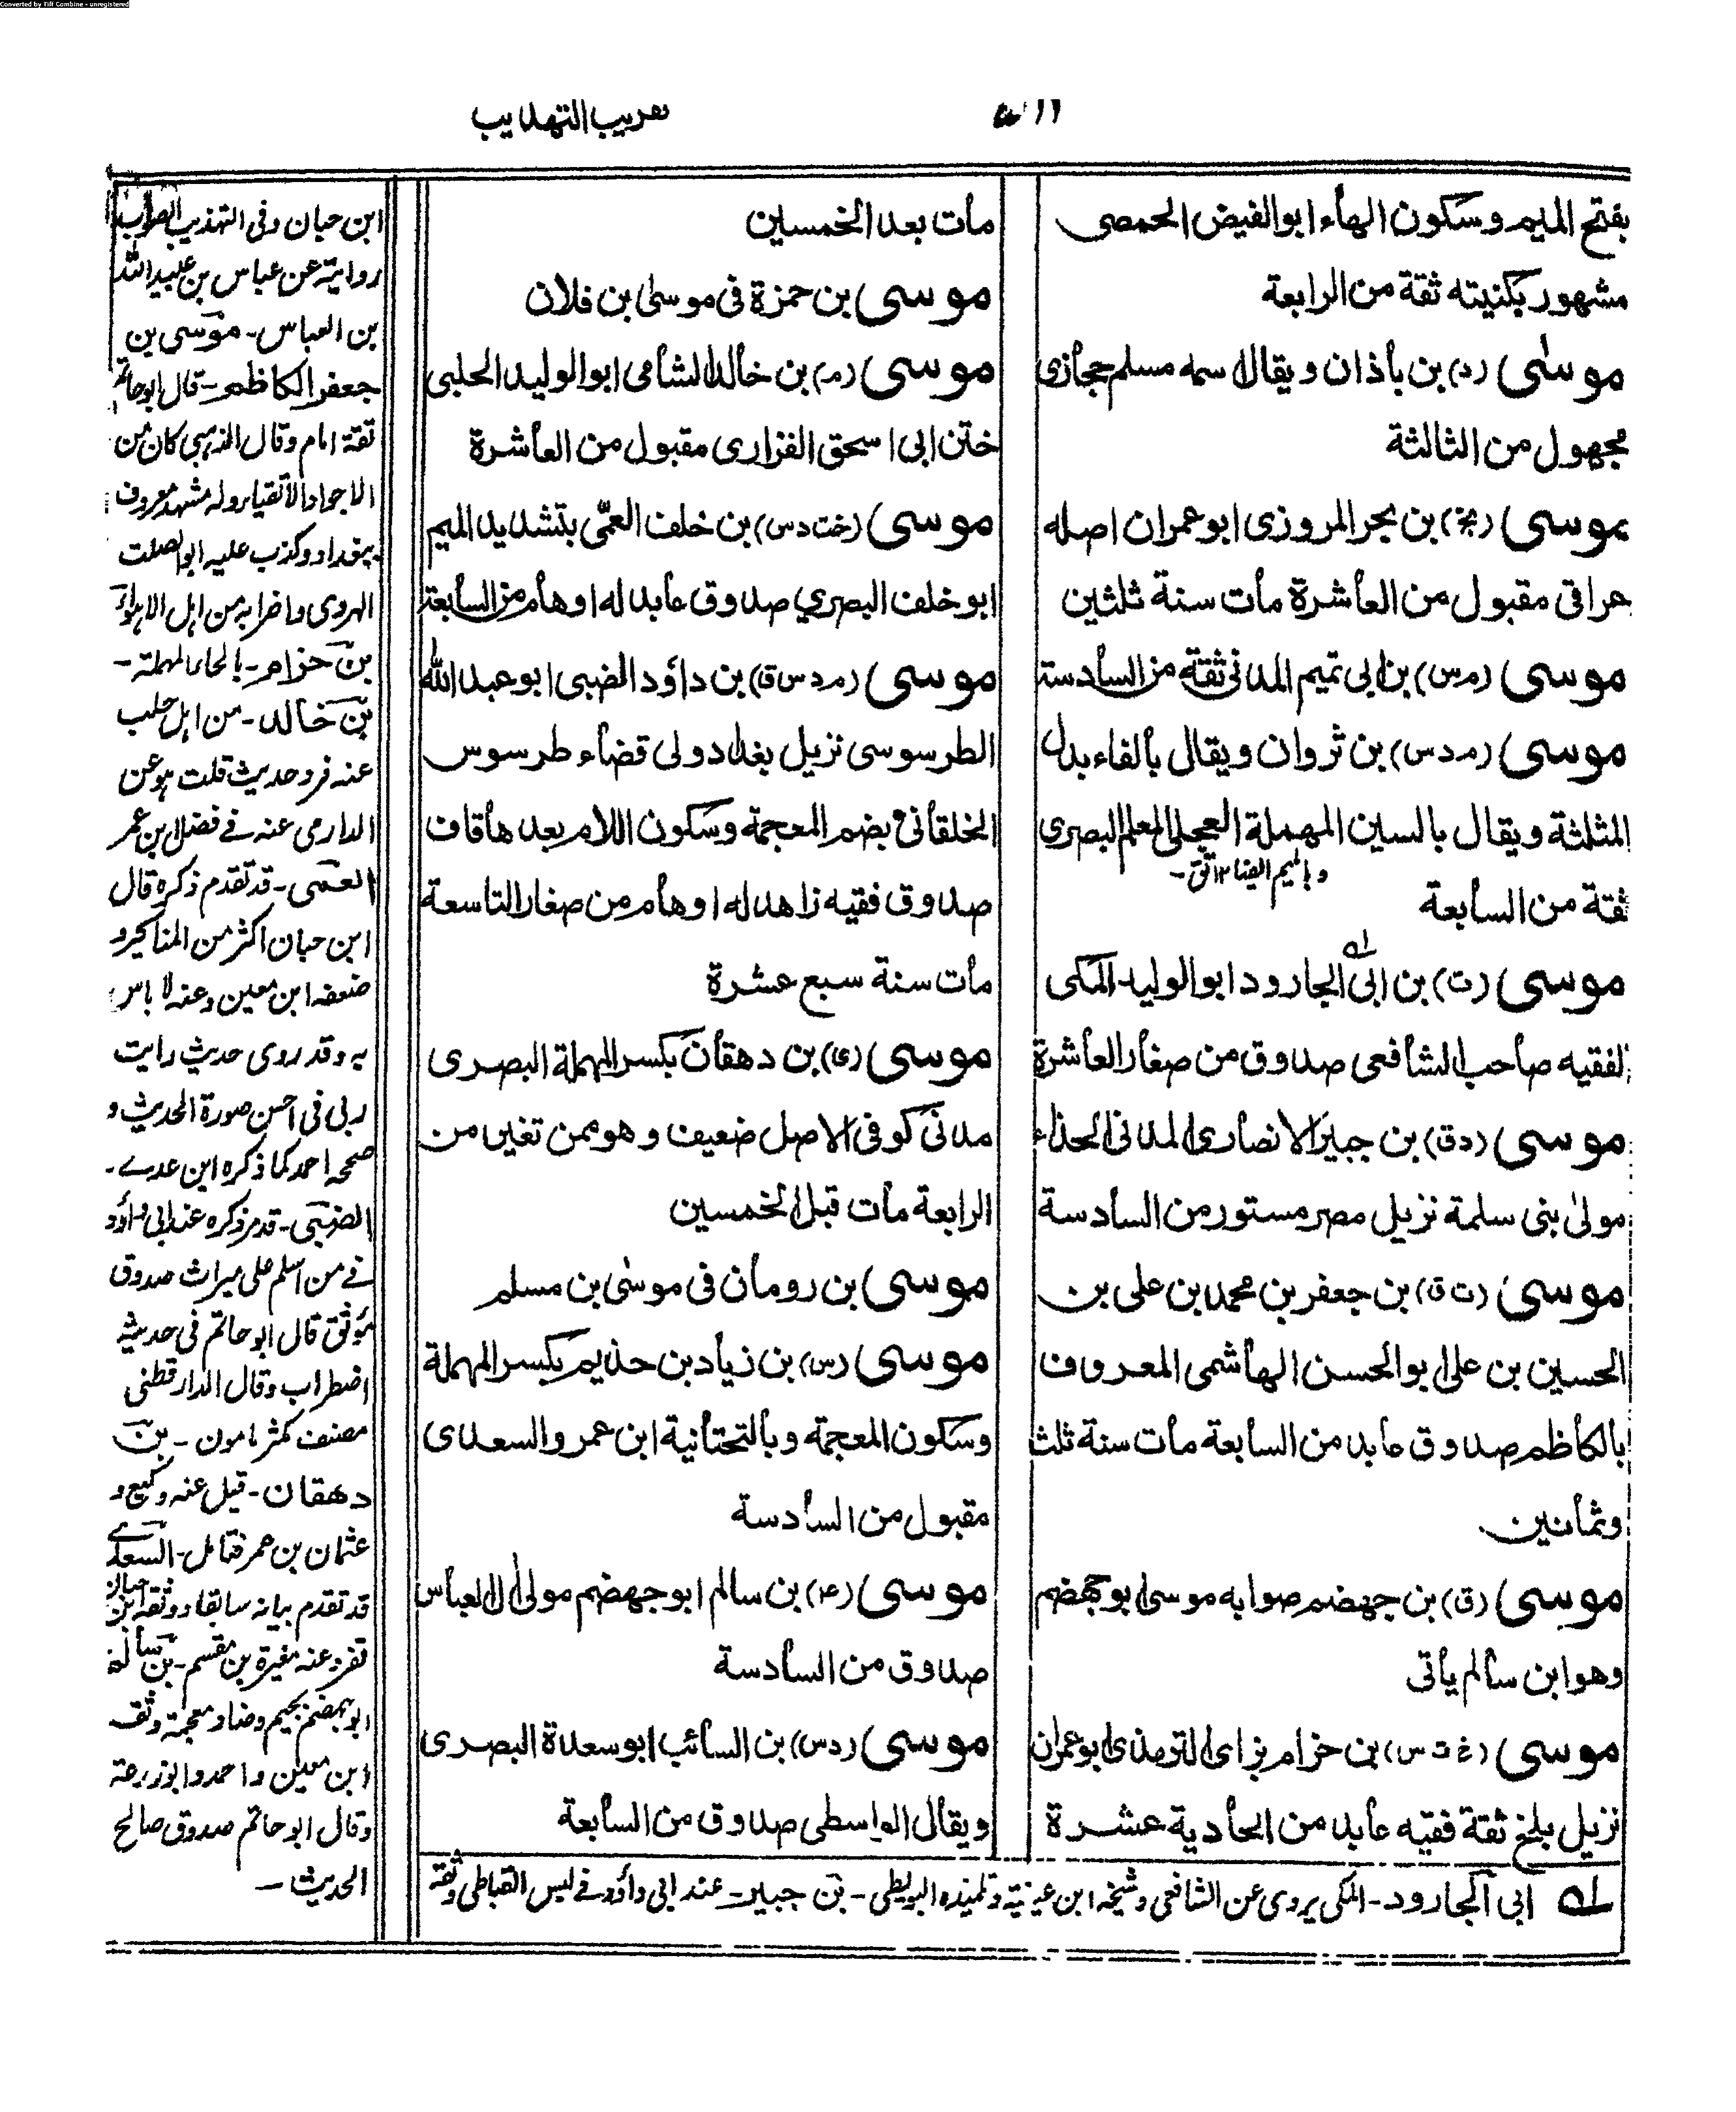 Converted by Tiff Combine - unregistered
تقريب التهذيب
بفتح الميم وسكون الهاء ابو الفيض الحمصى
مشهور بكنيته ثقة من الرابعة
موسى (د) بن باذان ويقال اسمه مسلم حجازى
مجهول من الثالثة
موسى (بخ) بن بحر المروزى ابو عمران اصله
عراقى مقبول من العاشرة مات سنة ثلثين
موسى (م س) بن ابى تميم المدنى ثقة من السادسة
موسى (م د س) بن ثروان ويقال بالفاء بدل
المثلثة ويقال بالسين المهملة العجلى المعلم البصرى
وبالميم ايضا ١٢
ثقة من السابعة
موسى (ت) بن ابى الجارود ابو الوليد المكى
الفقيه صاحب الشافعى صدوق من صغار العاشرة
موسى (د ق) بن جبير الانصارى المدنى الحذاء
مولى بنى سلمة نزيل مصر مستور من السادسة
موسى (ت ق) بن جعفر بن محمد بن على بن
الحسين بن على ابو الحسن الهاشمى المعروف
بالكاظم صدوق عابد من السابعة مات سنة ثلث
وثمانين
موسى (ق) بن جهضم صوابه موسى ابو جهضم
وهو ابن سالم يأتى
موسى (خ ت س) بن حزام بزاى الترمذى ابو عمران
نزيل بلخ ثقة فقيه عابد من الحادية عشرة
مات بعد الخمسين
موسى بن حمزة فى موسى بن فلان
موسى (م) بن خالد الشامى ابو الوليد الحلبى
ختن ابى اسحق الفزارى مقبول من العاشرة
موسى (خت د س) بن خلف العمّى بتشديد الميم
ابو خلف البصري صدوق عابد له اوهام من السابعة
موسى (م د س ق) بن داؤد الضبى ابو عبد الله
الطرسوسى نزيل بغداد ولى قضاء طرسوس
الخلقانى بضم المعجمة وسكون اللام بعدها قاف
صدوق فقيه زاهد له اوهام من صغار التاسعة
مات سنة سبع عشرة
موسى (ى) بن دهقان بكسر المهملة البصرى
مدنى كوفى الاصل ضعيف وهو ممن تغير من
الرابعة مات قبل الخمسين
موسى بن رومان فى موسى بن مسلم
موسى (س) بن زياد بن حذيم بكسر المهملة
وسكون المعجمة وبالتحتانية ابن عمرو السعدى
مقبول من السادسة
موسى (٤) بن سالم ابو جهضم مولى ال العباس
صدوق من السادسة
موسى (د س) بن السائب ابو سعدة البصرى
ويقال الواسطى صدوق من السابعة
ابن حبان وفى التهذيب الصواب
روايته عن عباس بن عبيد الله
بن العباس - موسى بن
جعفر الكاظم - قال ابو حاتم
ثقة امام وقال الذهبى كان من
الاجواد الاتقياء وله مشهد معروف
ببغداد وكذب عليه ابو الصلت
الهروى واضرابه من اهل الاهواء
بن حزام - بالحاء المهملة -
بن خالد - من اهل حلب
عنه فرد حديث قلت هو عن
الدارمى عنه فى فضل ابن عمر
العمى - قد تقدم ذكره قال
ابن حبان اكثر من المناكير و
ضعفه ابن معين وعنه لا باس
به وقد روى حديث رايت
ربى فى احسن صورة الحديث و
صححه احمد كما ذكره ابن عدى -
الضبى - قد مر ذكره عند ابى داؤد
فى من اسلم على ميراث صدوق
موثق قال ابو حاتم فى حديثه
اضطراب وقال الدارقطنى
مصنف مكثر مامون - بن
دهقان - قيل عنه وكيع و
عثمان بن عمر فتامل - السعدى
قد تقدم بيانه سابقا ووثقه ابن حبان
تفرد عنه مغيرة بن مقسم - بن سالم
ابو جهضم بجيم وضاد معجمة وثقه
ابن معين واحمد وابو زرعة
وقال ابو حاتم صدوق صالح
الحديث -
له ابى الجارود - المكى يروى عن الشافعى وشيخه ابن عيينة وتلميذه البويطى - بن جبير - عند ابى داؤد فى لبس القباطى وثقه